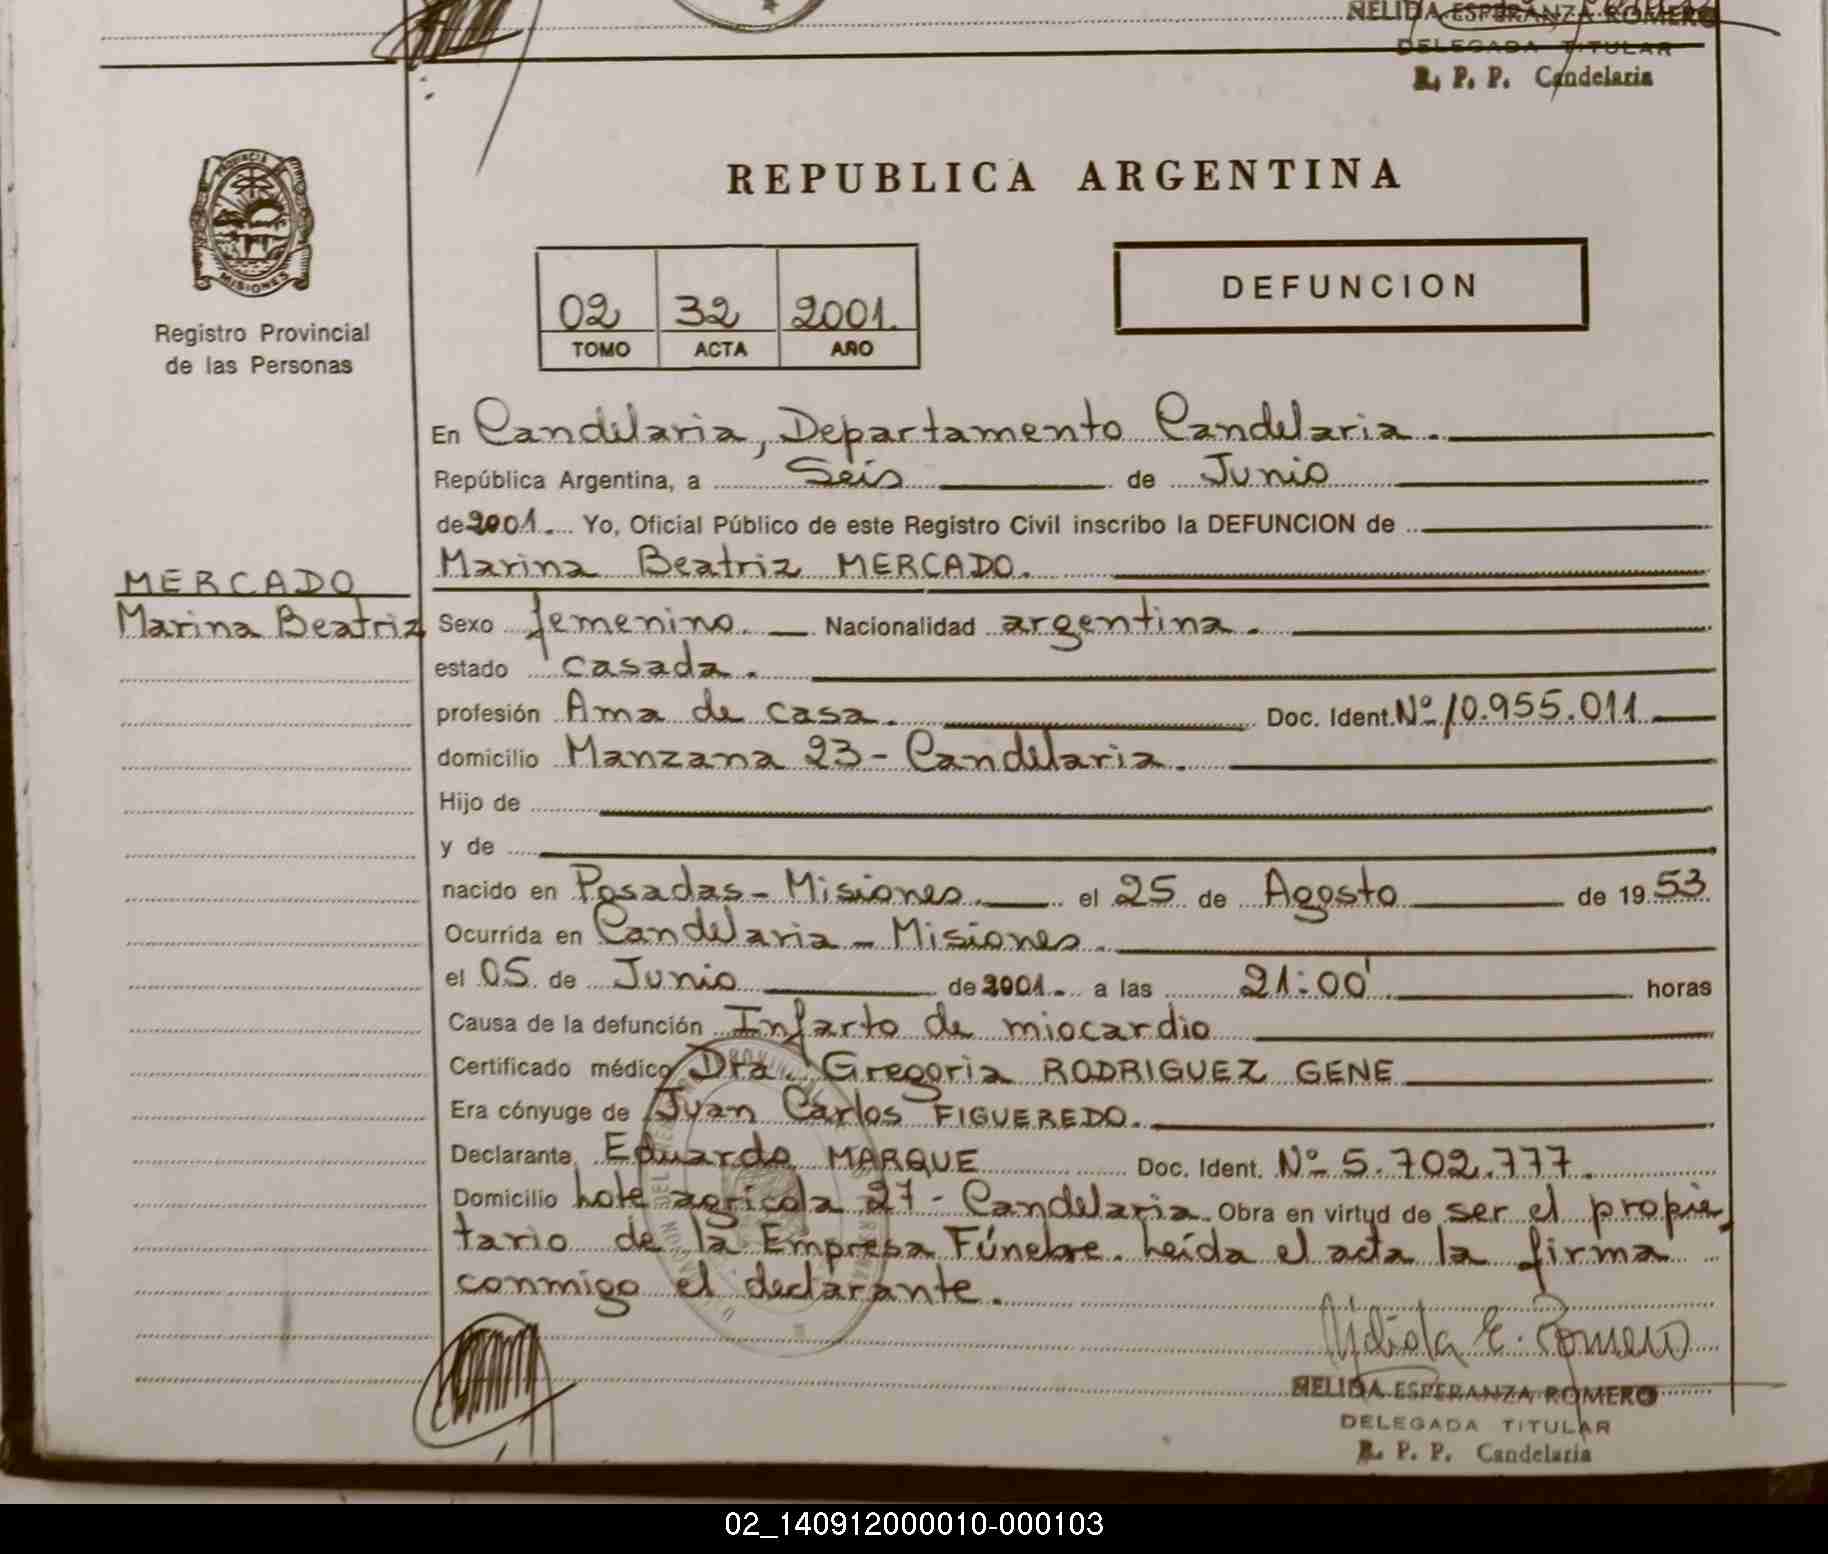 NELIDA ESPERANZA ROMERO
DELEGADA TITULAR
R. P. P. Candelaria
PROVINCIA
MISIONES
Registro Provincial
de las Personas
REPUBLICA ARGENTINA
02 32 2001.
TOMO ACTA AÑO
DEFUNCION
En Candelaria, Departamento Candelaria.
República Argentina, a Seis de Junio
de 2001. Yo, Oficial Público de este Registro Civil inscribo la DEFUNCION de
Marina Beatriz MERCADO.
MERCADO
Marina Beatriz
Sexo femenino. Nacionalidad argentina.
estado casada.
profesión Ama de casa. Doc. Ident. Nº 10.955.011
domicilio Manzana 23 - Candelaria.
Hijo de
y de
nacido en Posadas - Misiones. el 25 de Agosto de 1953
Ocurrida en Candelaria - Misiones.
el 05 de Junio de 2001. a las 21:00' horas
Causa de la defunción Infarto de miocardio
Certificado médico Dra. Gregoria RODRIGUEZ GENE
Era cónyuge de Juan Carlos FIGUEREDO.
Declarante Eduardo MARQUE Doc. Ident. Nº 5.702.777.
Domicilio Lote agricola 27 - Candelaria. Obra en virtud de ser el propie-
tario de la Empresa Fúnebre. Leída el acta la firma
conmigo el declarante.
NELIDA ESPERANZA ROMERO
DELEGADA TITULAR
R. P. P. Candelaria
02_140912000010-000103